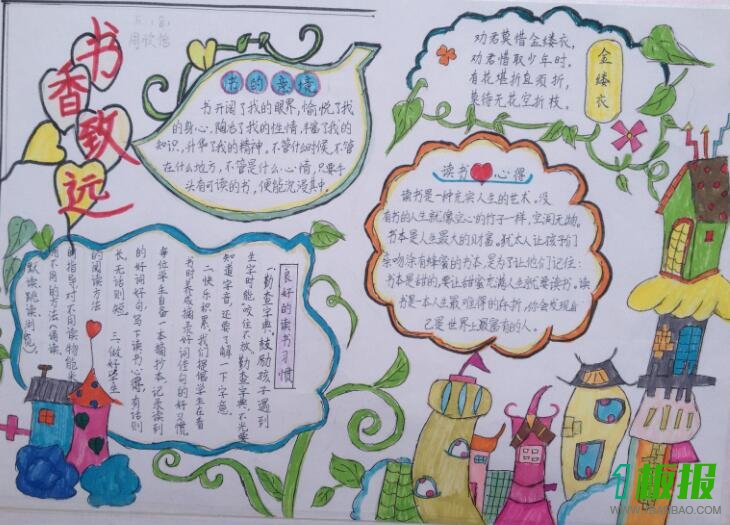 书香致远
五、(6)
书的意境
书开阔了我的眼界,愉悦了我
的身心,陶冶了我的性情,丰富了我的
知识,升华了我的精神,不管什么时候,不管
在什么地方,不管是什么心情,只要手
头有可读的书,便能沉浸其中。
金缕衣
劝君莫惜金缕衣,
劝君惜取少年时,
有花堪折直须折,
莫待无花空折枝。
读书心得
读书是一种充实人生的艺术。没
有书的人生就像空心的竹子一样,空洞无物。
书本是人生最大的财富。犹太人让孩子们
亲吻涂有蜂蜜的书本,是为了让他们记住:
书本是甜的,要让甜蜜充满人生就要读书。读
书是一本人生最难得的存折,你会发现自
己是世界上最富有的人。
良好的读书习惯
一、勤查字典。鼓励孩子遇到
生字时能"咬住不放"勤查字典,不光要
知道字音,还要了解一下字意。
二、快乐积累。我们提倡学生在看
书时养成摘录好词佳句的好习惯
每位学生自备一本摘抄本,记录读到
的好词好句,写下读书心得,有话则
长,无话则短。 三、做好学生
的阅读方法
的指导,对不同读物能采
用不同的方法(诵读、
默读、跳读、浏览)。
板报